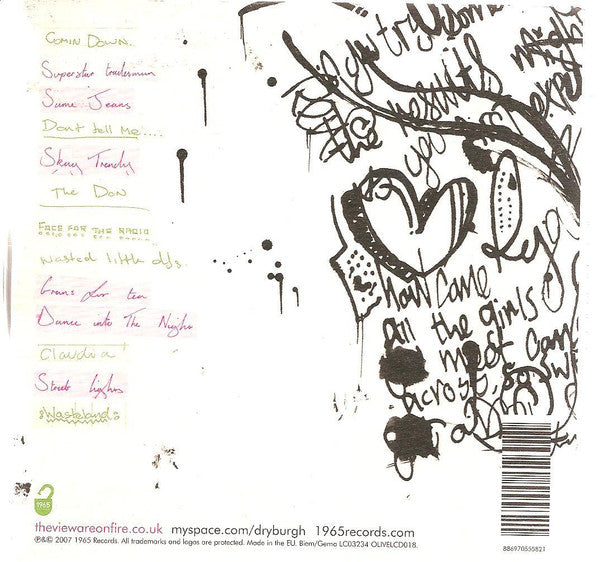 Comin Down.
Superstar tradesman
Same Jeans
Dont tell me....
Skag Trendy
The Don
FACE FOR THE RADIO
wasted little djs.
Grans for tea
Dance into The Night
Claudia
Street lights
Wasteland
if you try some
of the results might
you expe
how come
all the girls
meet
across, so
1965
theviewareonfire.co.uk myspace.com/dryburgh 1965records.com
℗&© 2007 1965 Records. All trademarks and logos are protected. Made in the EU. Biem/Gema LC03234 OLIVELCD018.
886970555821